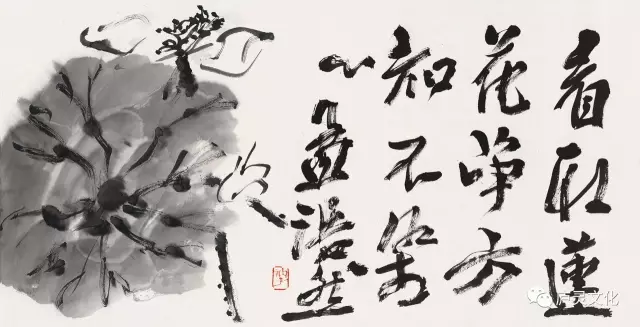 看取蓮
花净方
知不染
心 孟浩然
文化